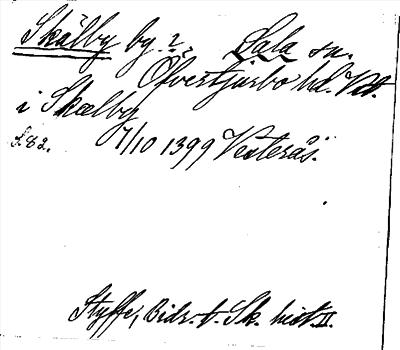 Skälby by? Sala sn.
Öfvertjurbo hd. Vstm.
i Skælby
S. 82. 7/10 1399 Vesterås.
Styffe, Bidr. t. Sk. hist. II.